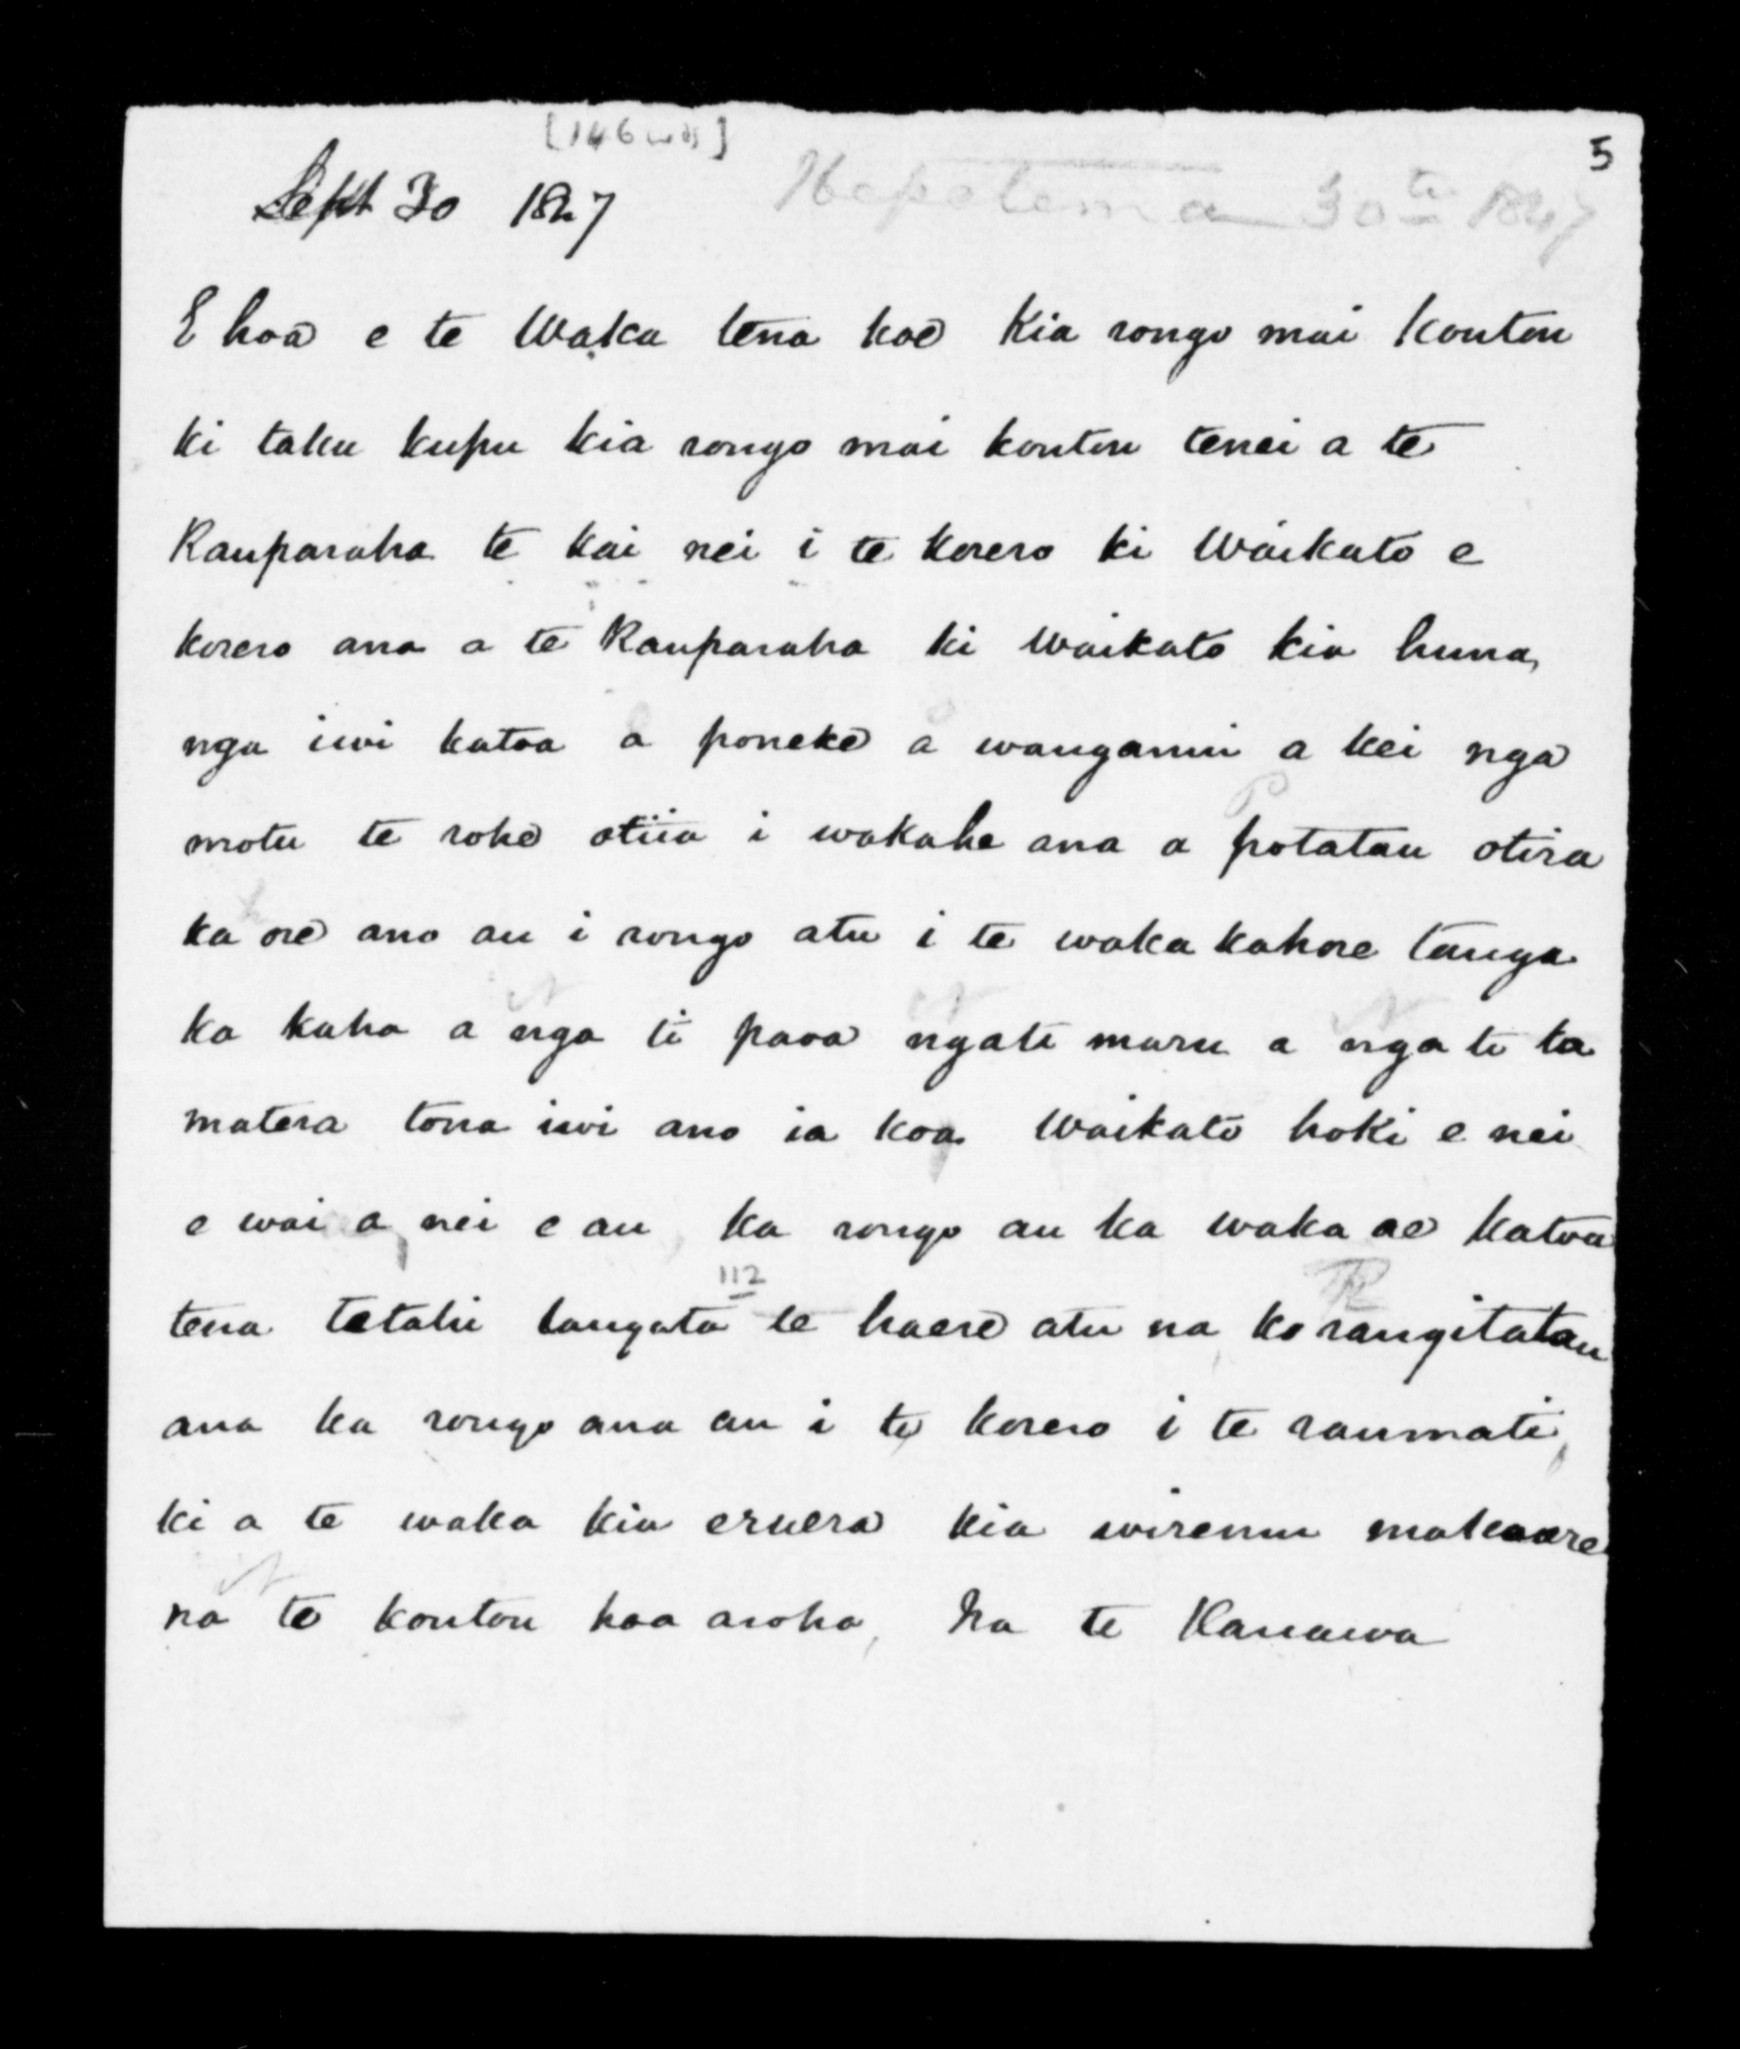 [146 wds]
5
Sept 30 1847 Hepetema 30th 1847
E hoa e te Waka tena koe Kia rongo mai Koutou
ki taku kupu kia rongo mai koutou tenei a te
Rauparaha te kai nei i te korero ki Waikato e
korero ana a te Rauparaha ki Waikato kia huna,
nga iwi katoa a poneke a wanganui a kei nga
motu te rohe otiia i wakahe ana a potatau otira
ka ore ano au i rongo atu i te waka kahore tanga
ka kaha a nga ti paoa ngati maru a nga ti ta
matera tona iwi ano ia koa Waikato hoki e nei
e wai a nei e au, ka rongo au ka waka ae katoa
112
tena tetahi tangata te haere atu na, ko rangitatau
ana ka rongo ana au i te korero i te raumati,
ki a te waka kia eruera kia wiremu
na to koutou hoa aroha, Na te Kanawa